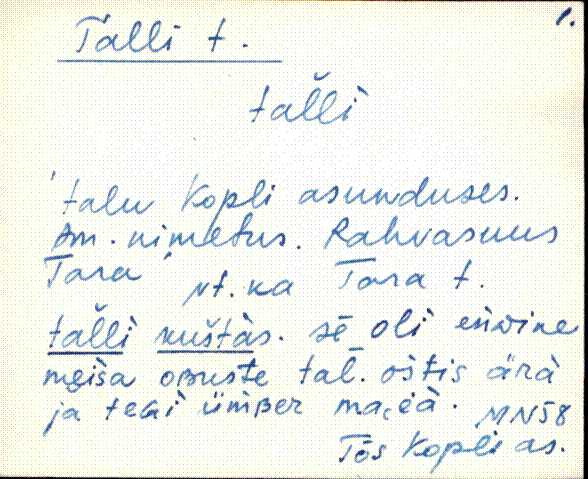 1.
Talli t.
taľľi
'talu Kopli asunduses.
Am. nimetus. Rahvasuus
Tara' Vt. ka Tara t.
taľľi kuštàs. sē oli
meiša oʙuste tal. oštis ärà
ja teɢi ümʙer
MN58
Tõs Kopli as.